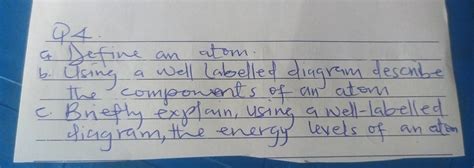 Q4.
a. Define an atom.
b. Using a well labelled diagram describe
the components of an atom
c. Briefly explain, using a well-labelled
diagram, the energy levels of an atom